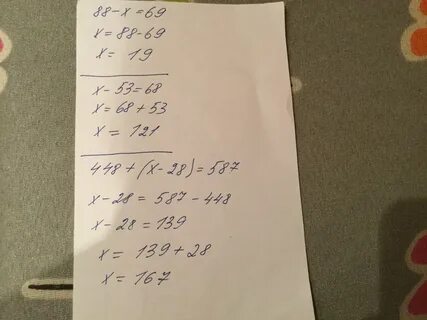 88-x=69
x=88-69
x= 19
x-53=68
x=68+53
x= 121
448+(x-28)=587
x-28=587-448
x-28=139
x= 139+28
x=167